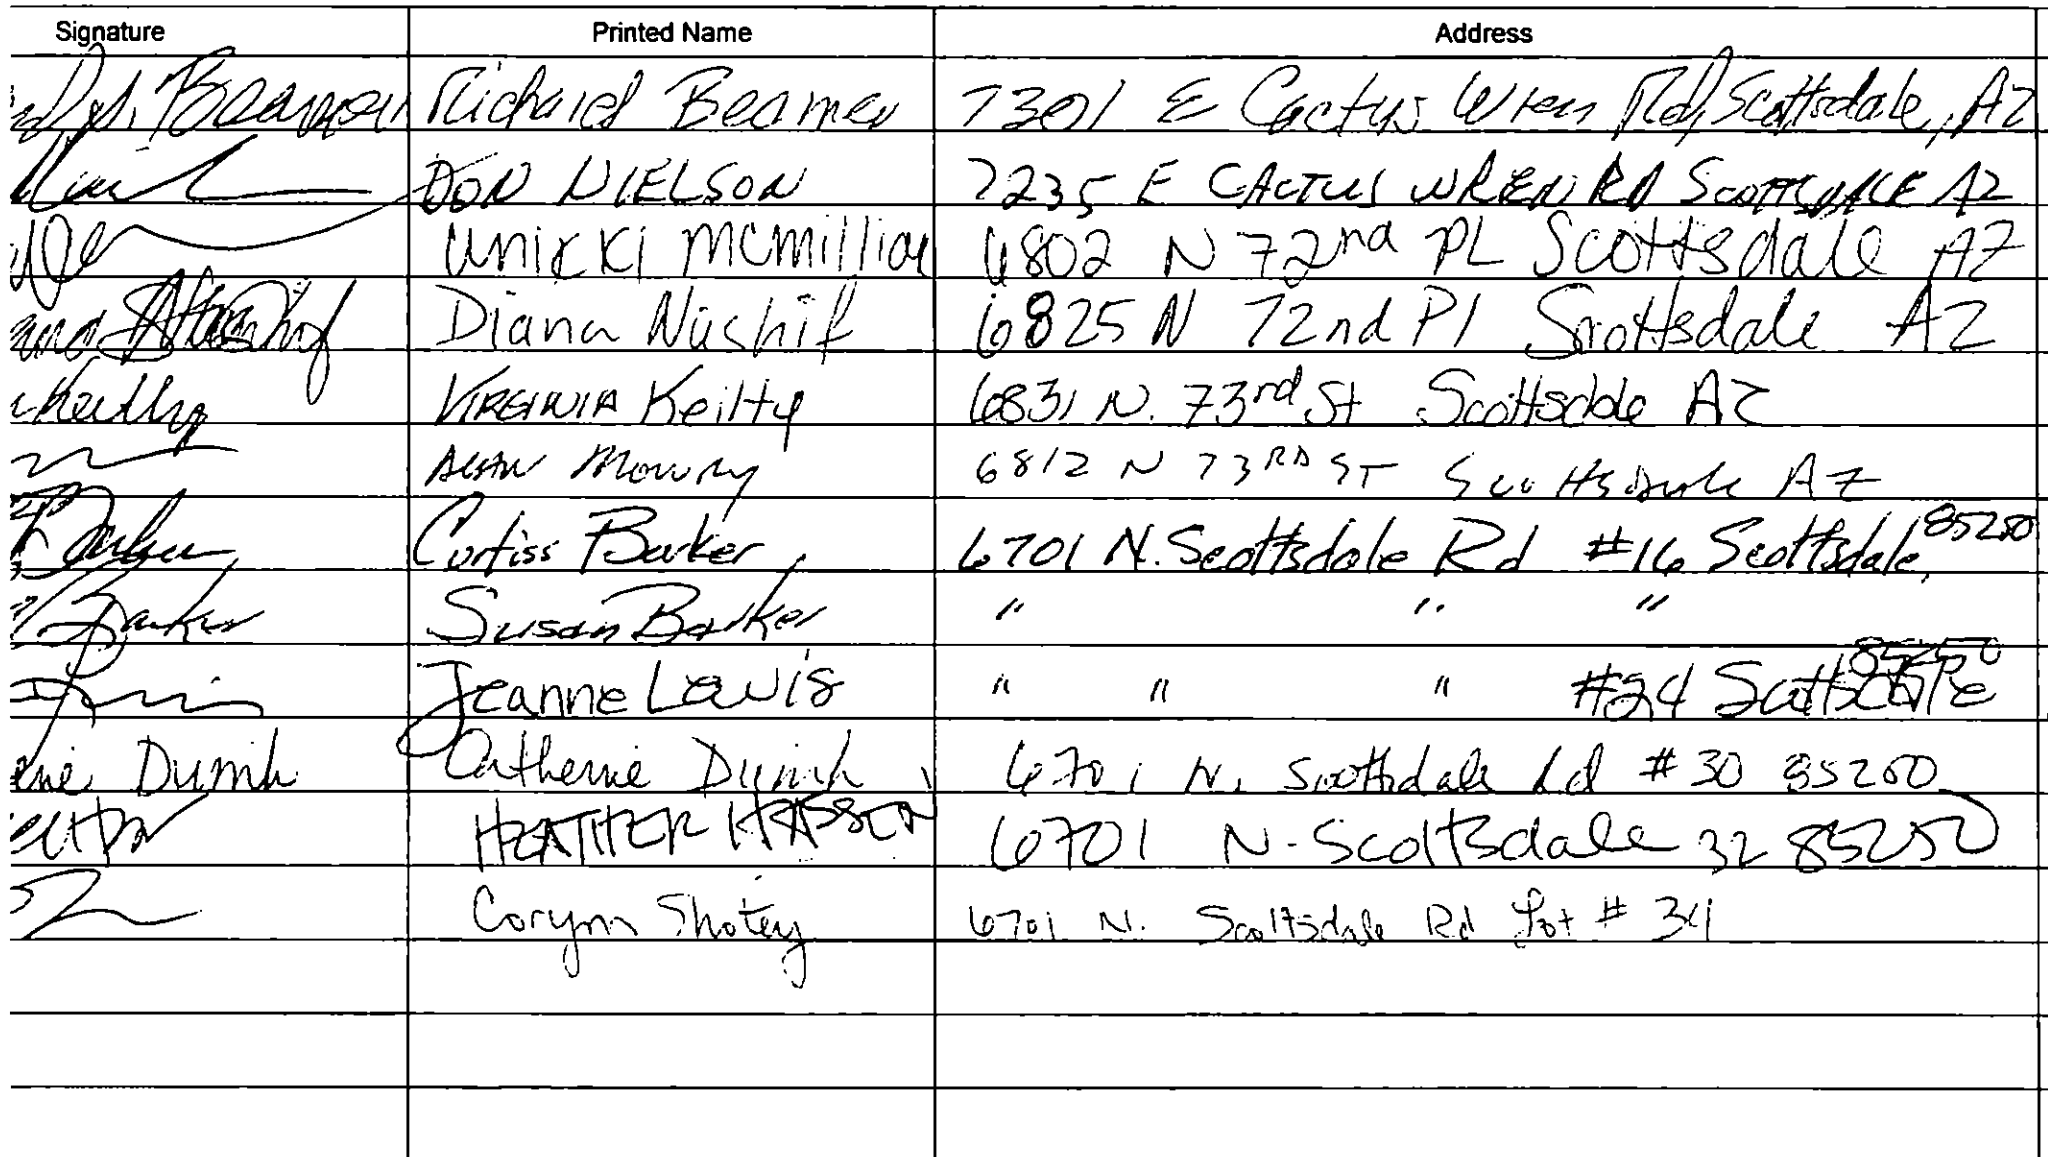 Signature Printed Name Address
Beamer Richard Beamer 7301 E Cactus Wren Rd, Scottsdale, AZ
DON NIELSON 7235 E CACTUS WREN RD SCOTTSDALE AZ
unikki mcmillian 6802 N 72nd PL Scottsdale AZ
Diana Nashif 6825 N 72nd Pl Scottsdale AZ
VIRGINIA Keilty 6831 N. 73rd St Scottsdale AZ
ALAN Mowry 6812 N 73RD ST Scottsdale AZ
Barker Curtiss Barker 6701 N. Scottsdale Rd #16 Scottsdale, 85250
Barker Susan Barker " " "
Jeanne Lewis " " " #24 Scottsdale 85250
Dumh Catherine Dumh 6701 N. Scottsdale Rd #30 85250
HEATHER HASSEN 6701 N. Scottsdale 32 85250
Corynn Shotey 6701 N. Scottsdale Rd Lot # 34